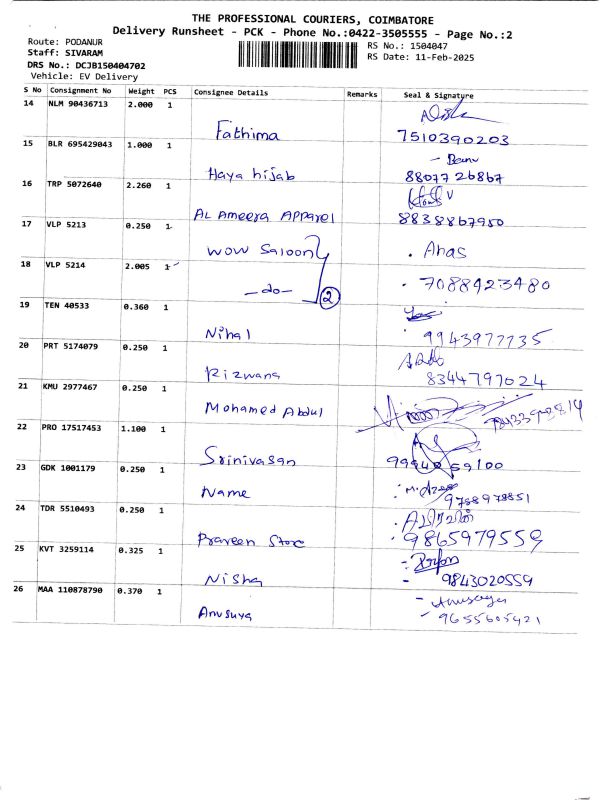 THE PROFESSIONAL COURIERS, COIMBATORE
Delivery Runsheet - PCK - Phone No.:0422-3505555 - Page No.:2
Route: PODANUR
RS No.: 1504047
Staff: SIVARAM
RS Date: 11-Feb-2025
DRS No.: DCJB150404702
Vehicle: EV Delivery
S No Consignment No Weight PCS Consignee Details Remarks Seal & Signature
14 NLM 90436713 2.000 1
Fathima 7510390203
15 BLR 695429043 1.000 1
Haya hijab 8807726867
16 TRP 5072640 2.260 1
AL Ameera Apparel 8838867950
17 VLP 5213 0.250 1
WOW Saloon . Anas
18 VLP 5214 2.005 1
-do- 2 . 7088423480
19 TEN 40533 0.360 1
Nihal 9943977735
20 PRT 5174079 0.250 1
Rizwana 8344797024
21 KMU 2977467 0.250 1
Mohamed Abdul
22 PRO 17517453 1.100 1
Srinivasan
23 GDK 1001179 0.250 1
Name 9788978851
24 TDR 5510493 0.250 1
Praveen Store 9865979559
25 KVT 3259114 0.325 1
Nisha - 9843020559
26 MAA 110878790 0.370 1
Anusuya - 9655605421